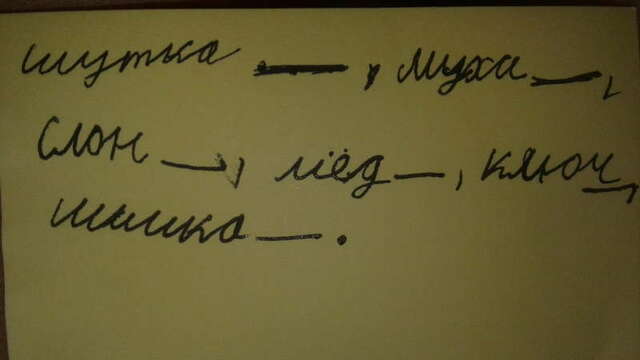 шутка —, муха —,
слон —, мёд —, ключ —,
шишка —.